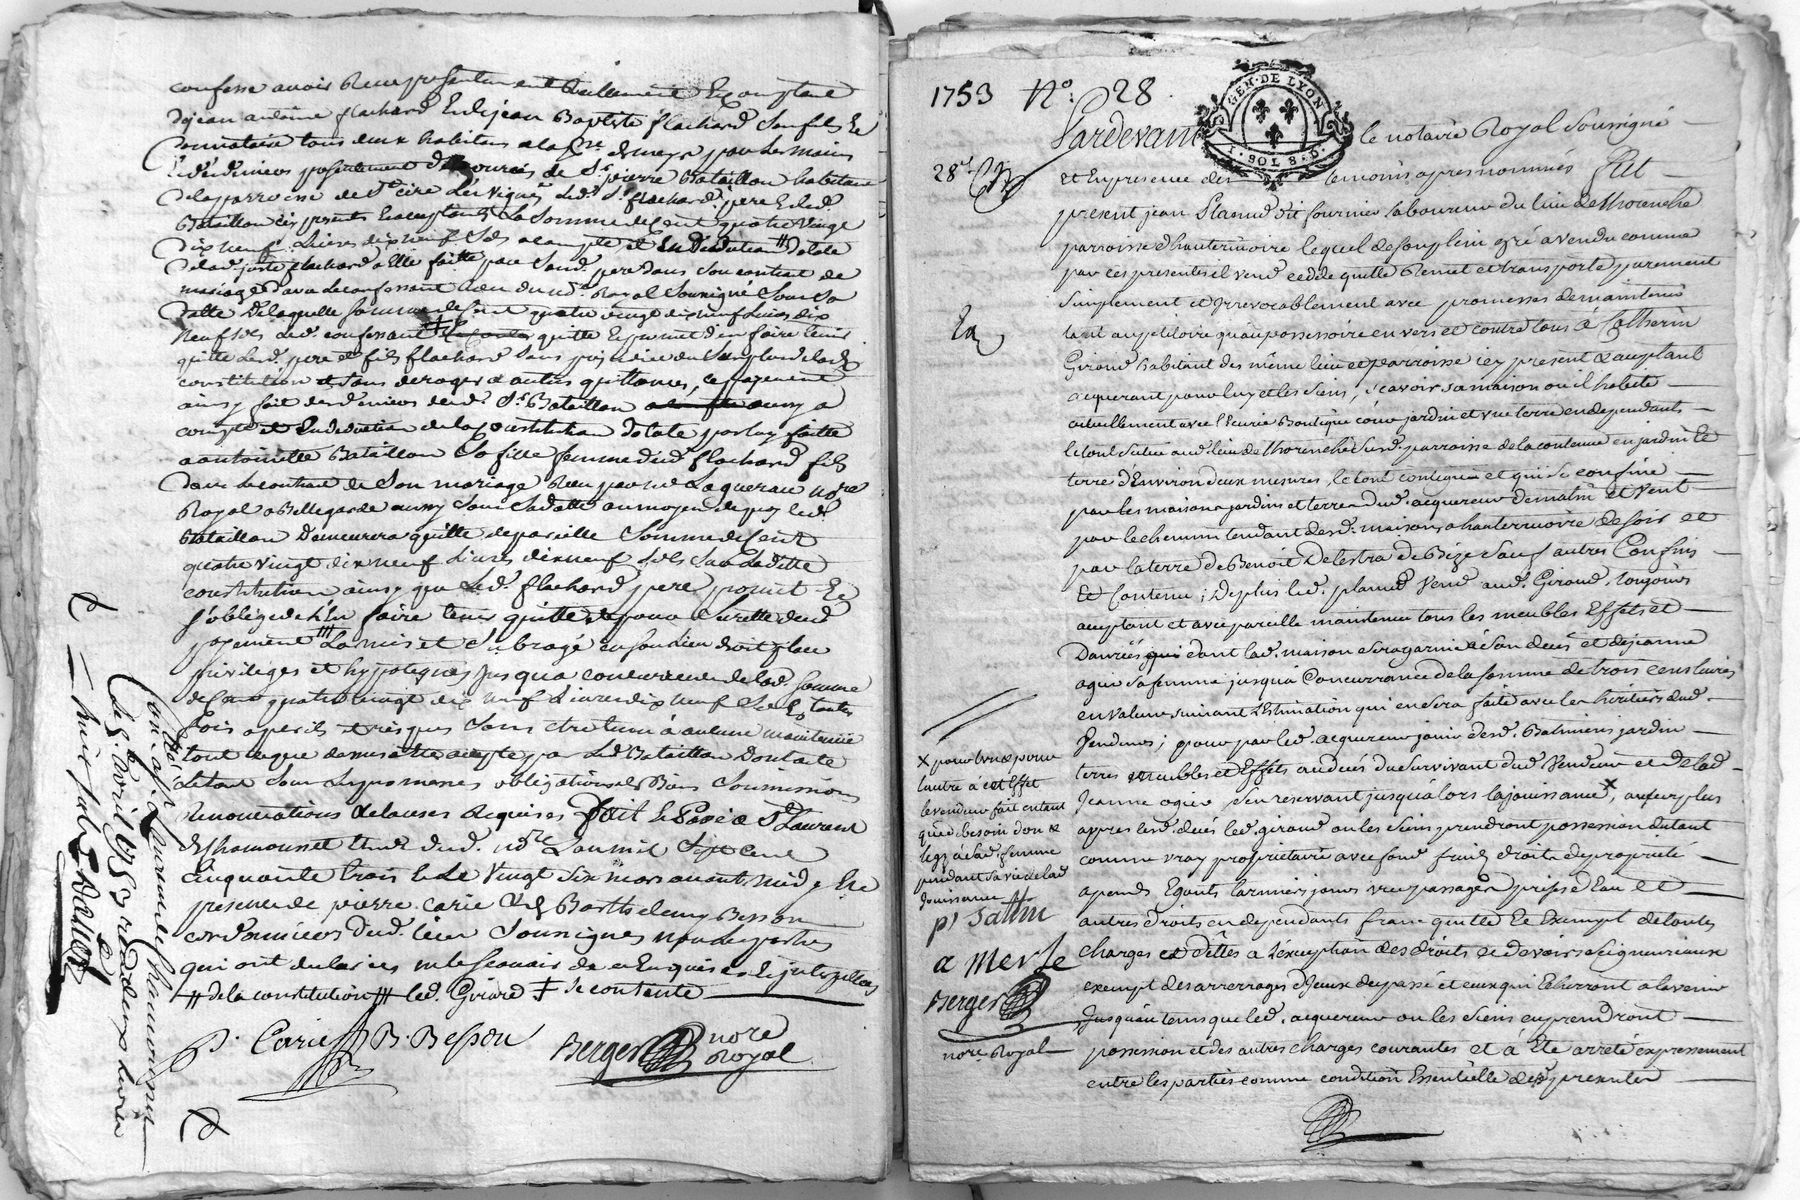 confesse avoir Receu presentement Reellement Et comptant
dejean antoine flachard Et dejean Baptiste flachard son fils Et
Donnataire tous deux habitans a la par les mains
Et deniers presentement de Sr pierre Bataillon habitant
dela parroisse de St cire Les Vignes led. Sr flachard pere Et led.
Bataillon icy presents Et acceptants La somme de Cent quatre vingt
dix neuf Livres dix neuf sols acompte et En Deduction # Dotale
flachard a Elle faitte par sond. pere dans son contrat de
mariage avec le confessant Receu dud. Royal soussigné sous sa
datte De laquelle somme de Cent quatre vingt dix neuf Livres dix
neuf sols led. confessant ‡ quitte Et promet d'en faire tenir
quitte lesd. pere et fils flachard sans prejudice du surplus de lad.
constitution et sans deroger a autres quittances, ce payement
ainsy fait des deniers dud. Sr Bataillon aussy a
compte et En deduction de la Constitution Dotale par luy faitte
a antoinette Bataillon sa fille femme dud. flachard fils
Dans le contrat de son mariage Receu par me nore
Royal a Bellegarde aussy sous sa datte au moyen de quoy led.
Bataillon Demeurera quitte de pareille somme de Cent
quatre vingt dix neuf Livres dix neuf sols sur laditte
constitution ainsy que led. flachard pere promet Et
s'oblige de l'En faire tenir quitte pour seurette dud.
payement ||| La mis et subrogé en son lieu droit place
privileges et hypoteques jusqua concurrence de lad. somme
de Cent quatre vingt dix neuf Livres dix neuf sols toutes
fois a perils et risques sans etre tenu a aucune maintenue
par led. Bataillon Dont acte
obligations de Biens soumissions
Renonciations et clauses Requises Fait Et Passé a St Laurent
de Chamousset Etude dud. nore L'an mil Sept Cent
Cinquante trois Et Le Vingt six mars avant midy En
presence de pierre carie Et de Barthelemy Besson
cordonniers dud. lieu soussignes non les parties
qui ont declaré ne le scavoir de ce Enquises Et interpellées
# de la constitution ||| led. Girard ‡ se contente
P. Carie B. Besson Berger nore
Royal
Con.lé a St Laurent de Chamousset
Le 9. avril 1753 Recû deux livres
huit sols
1753 No: 28
GEN. DE LYON
1 SOL 8 D.
Pardevant le notaire Royal soussigné
28e
et En presence des temoins apres nommés Fut
present jean Planud dit fournier laboureur du lieu de thorenche
parroisse d'hauterivoire lequel de son plein gré a vendu comme
par ces presentes il vend cedde quitte Remet et transporte purement
simplement et Irrevocablement avec promesses de maintenir
tant au petitoire qu'au possessoire envers et contre tous à Catherin
Giroud habitant des même lieu et parroisse icy present et acceptant
acquerant pour luy et les siens, scavoir sa maison ou il habite
actuellement avec l'ecurie Boutique cour jardin et une terre en dependants
le tout scitué aud. lieu de thorenche susd. parroisse de la contenue en jardin et
terre d'Environ deux mesures, le tout contigu et qui se confine
par les maison jardin et terre dud. acquereur de matin et vent
par le chemin tendant desd. maisons a hauterivoire de soir et
par la terre de Benoit Delestra de Bize sauf autres Confins
Et Contenu; De plus led. planud Vend aud. Giroud, toujours
acceptant et avec pareille maintenue tous les meubles Effets et
Danrées dont lad. maison sera garnie à son decés et dejeanne
ogier sa femme jusqu'a Concurrance de la somme de trois cens livres
en valeur suivant L'Estimation qui en sera faite avec les heritiers dud.
Vendeur; pour par led. acquereur jouir desd. Batiments jardin
terres meubles et Effets au decés du survivant dud. Vendeur et de lad.
Jeanne ogier s'en reservant jusqu'à lors la jouissance x, au surplus
appres lesd. decés led. giroud ou les siens prendront possession du tout
comme vray proprietaire avec fond fruits droits de proprieté
apands Egouts larmiers jours vues passages prise d'Eau et
autres droits en dependants franc quitte Et Exempt de toutes
charges et dettes a l'exception des droits et devoirs seigneuriaux
exempt des arrerrages d'Iceux du passé et ceux qui Echerront a l'avenir
jusqu'au tems que led. acquereur ou les siens en prendront
possession et des autres charges courantes et a Eté arrété expressement
entre les parties comme condition Essentielle des presentes
x pour l'un et pour
l'autre à cet Effet
le vendeur fait en tant
que de besoin don et
legs à lad. femme
pendant sa vie de lad.
jouissance
a merle
Berger
nore Royal